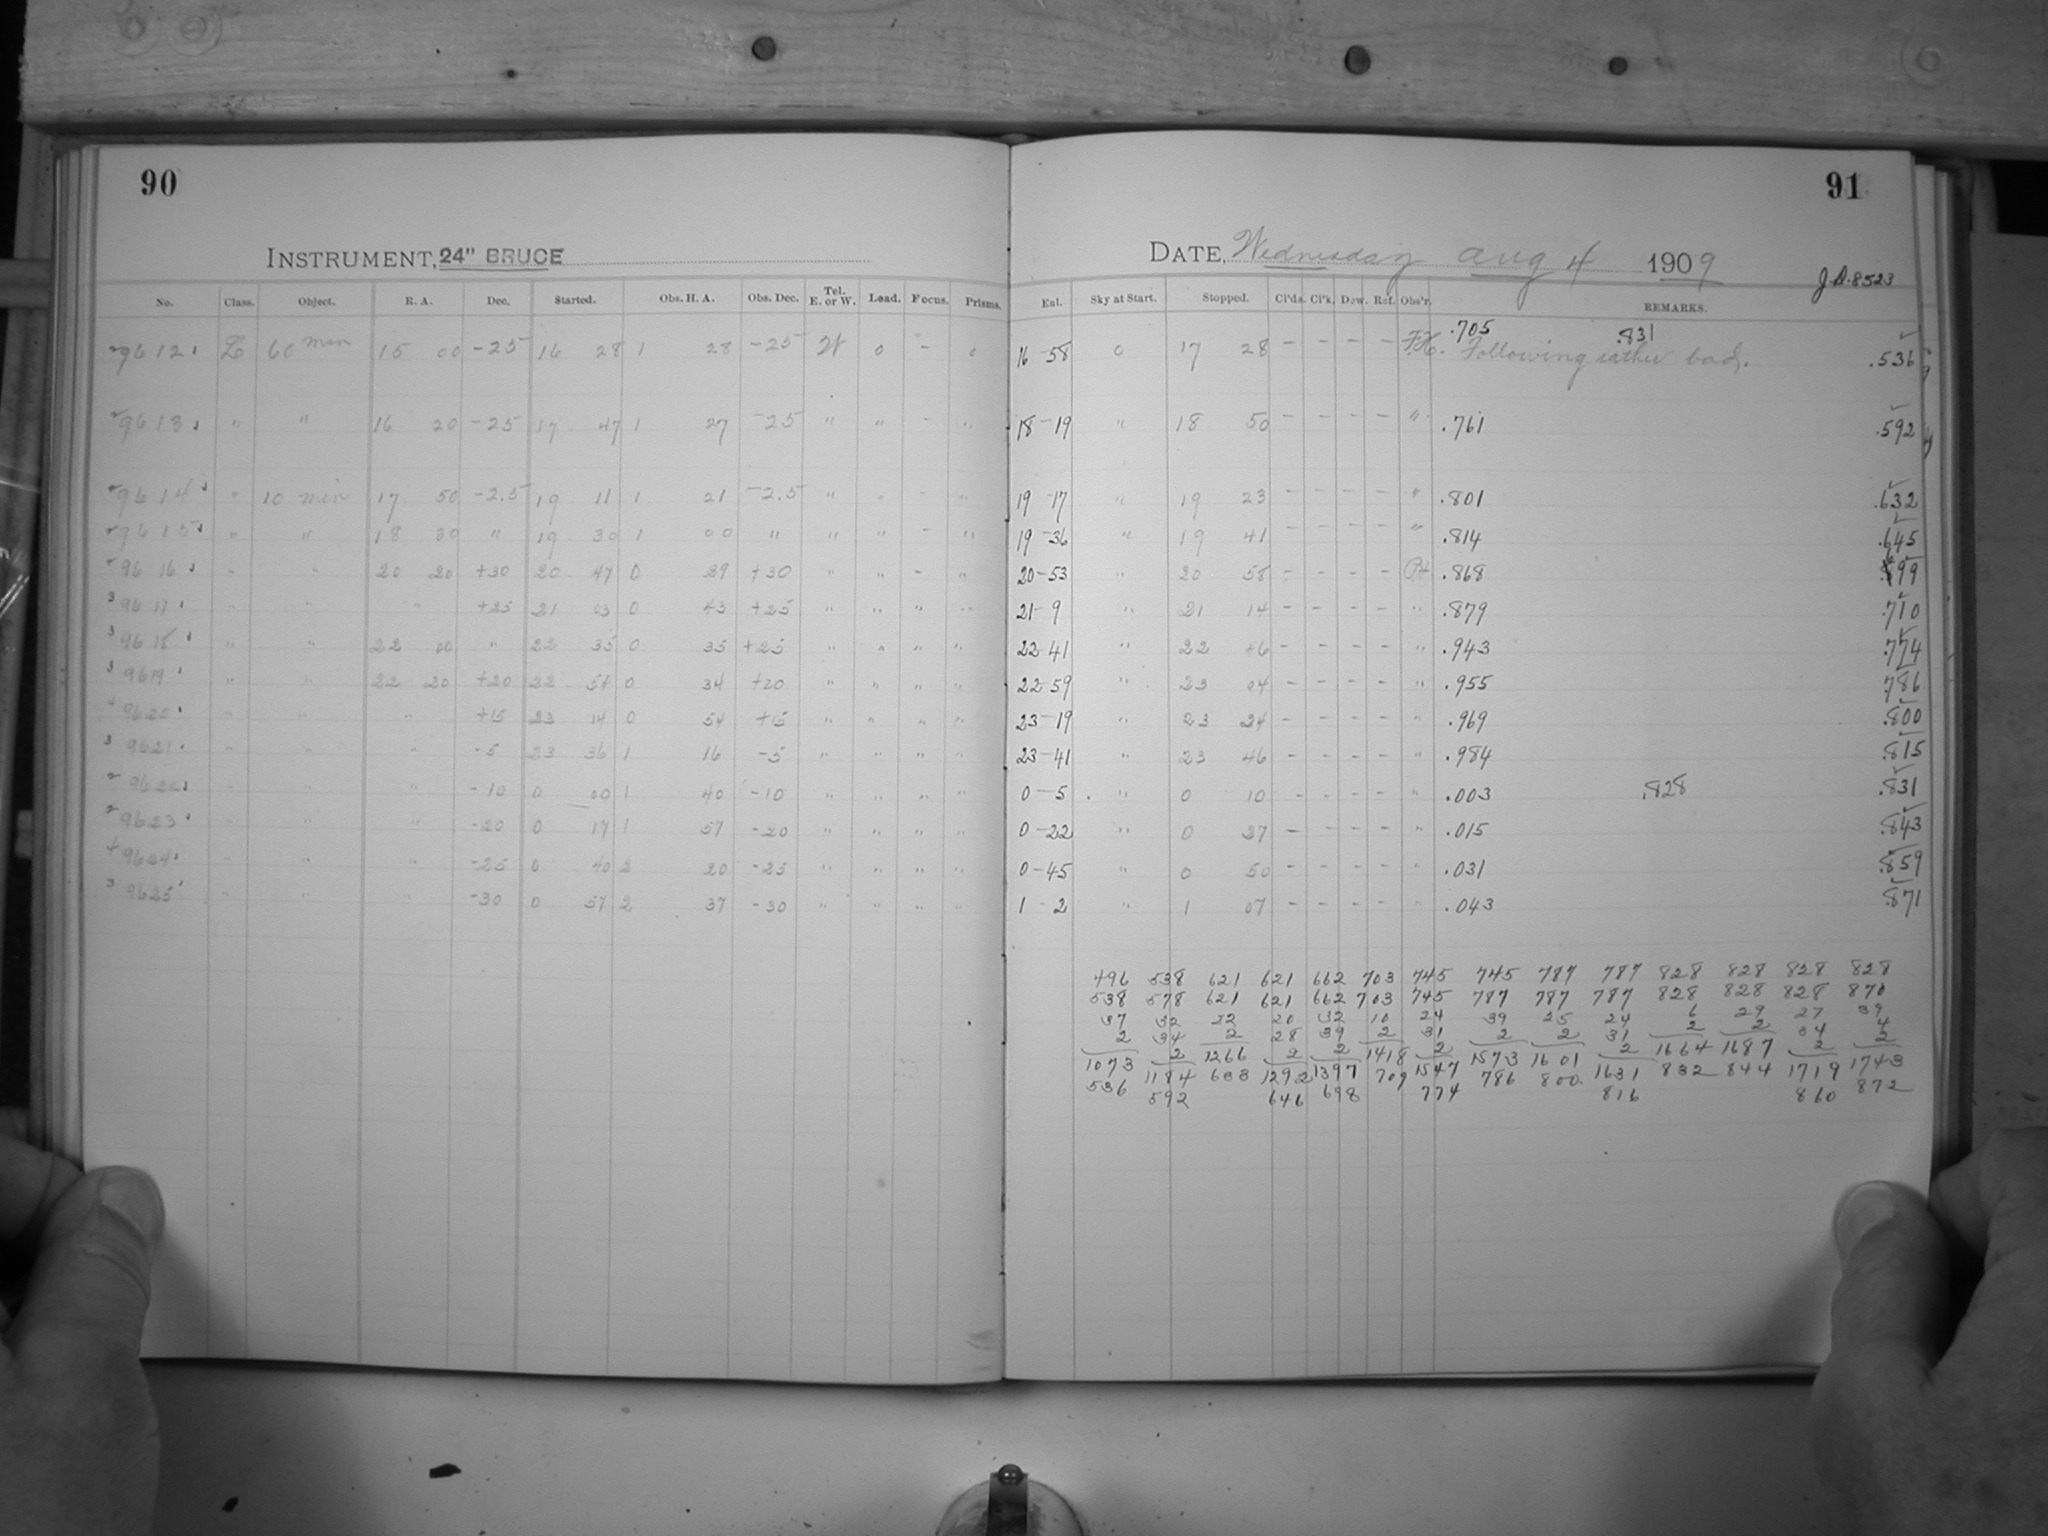 90
91
INSTRUMENT, 24" BRUCE
DATE, Wednesday Aug 4 1909
J.D. 8523
No. Class. Object. R. A. Dec. Started. Obs. H. A. Obs. Dec. Tel. E. or W. Load. Focus. Prisms.
Ent. Sky at Start. Stopped. Cl'ds. Cl'k. Dew. Ref. Obs'r. REMARKS.
.705 .831
9612 L 60 min 15 00 -25 16 28 1 28 -25 W 0 - 0 16-58 0 17 28 - - - - F.H. Following rather bad. .536
9613 " " 16 20 -25 17 47 1 27 -25 " " - " 18-19 " 18 50 - - - - " .761 .592
9614 " 10 min 17 50 -2.5 19 11 1 21 -2.5 " " - " 19-17 " 19 23 - - - - " .801 .632
9615 " " 18 30 " 19 30 1 00 " " " - " 19-36 " 19 41 - - - - " .814 .645
9616 " " 20 20 +30 20 47 0 29 +30 " " - " 20-53 " 20 58 - - - - .868
9617 " " " +25 21 03 0 43 +25 " " " " 21-9 " 21 14 - - - - " .879 .710
9618 " " 22 00 " 22 35 0 35 +25 " " " " 22-41 " 22 46 - - - - " .943 .774
9619 " " 22 20 +20 22 54 0 34 +20 " " " " 22-59 " 23 04 - - - - " .955 .786
9620 " " " +15 23 14 0 54 +15 " " " " 23-19 " 23 24 - - - - " .969 .800
9621 " " " -5 23 36 1 16 -5 " " " " 23-41 " 23 46 - - - - " .984 .815
9622 " " " -10 0 00 1 40 -10 " " " " 0-5 " 0 10 - - - - " .003 .828 .831
9623 " " " -20 0 17 1 57 -20 " " " " 0-22 " 0 27 - - - - " .015 .843
9624 " " " -25 0 40 2 20 -25 " " " " 0-45 " 0 50 - - - - " .031 .859
9625 " " " -30 0 57 2 37 -30 " " " " 1-2 " 1 07 - - - - " .043 .871
496 538 621 621 662 703 745 745 787 787 828 828 828 828
538 578 621 621 662 703 745 787 787 787 828 828 828 870
37 32 22 20 32 10 24 39 25 24 6 29 27 39
2 34 2 28 39 2 31 2 2 31 2 2 34 4
1073 2 1266 2 2 1418 2 1573 1601 2 1664 1687 2 2
536 1184 633 1292 1397 709 1547 786 800 1631 832 844 1719 1743
592 646 698 774 816 860 872